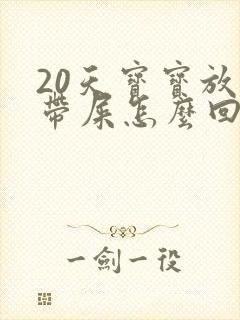 20天寶寶放
帶屎怎麼回
一劍一役